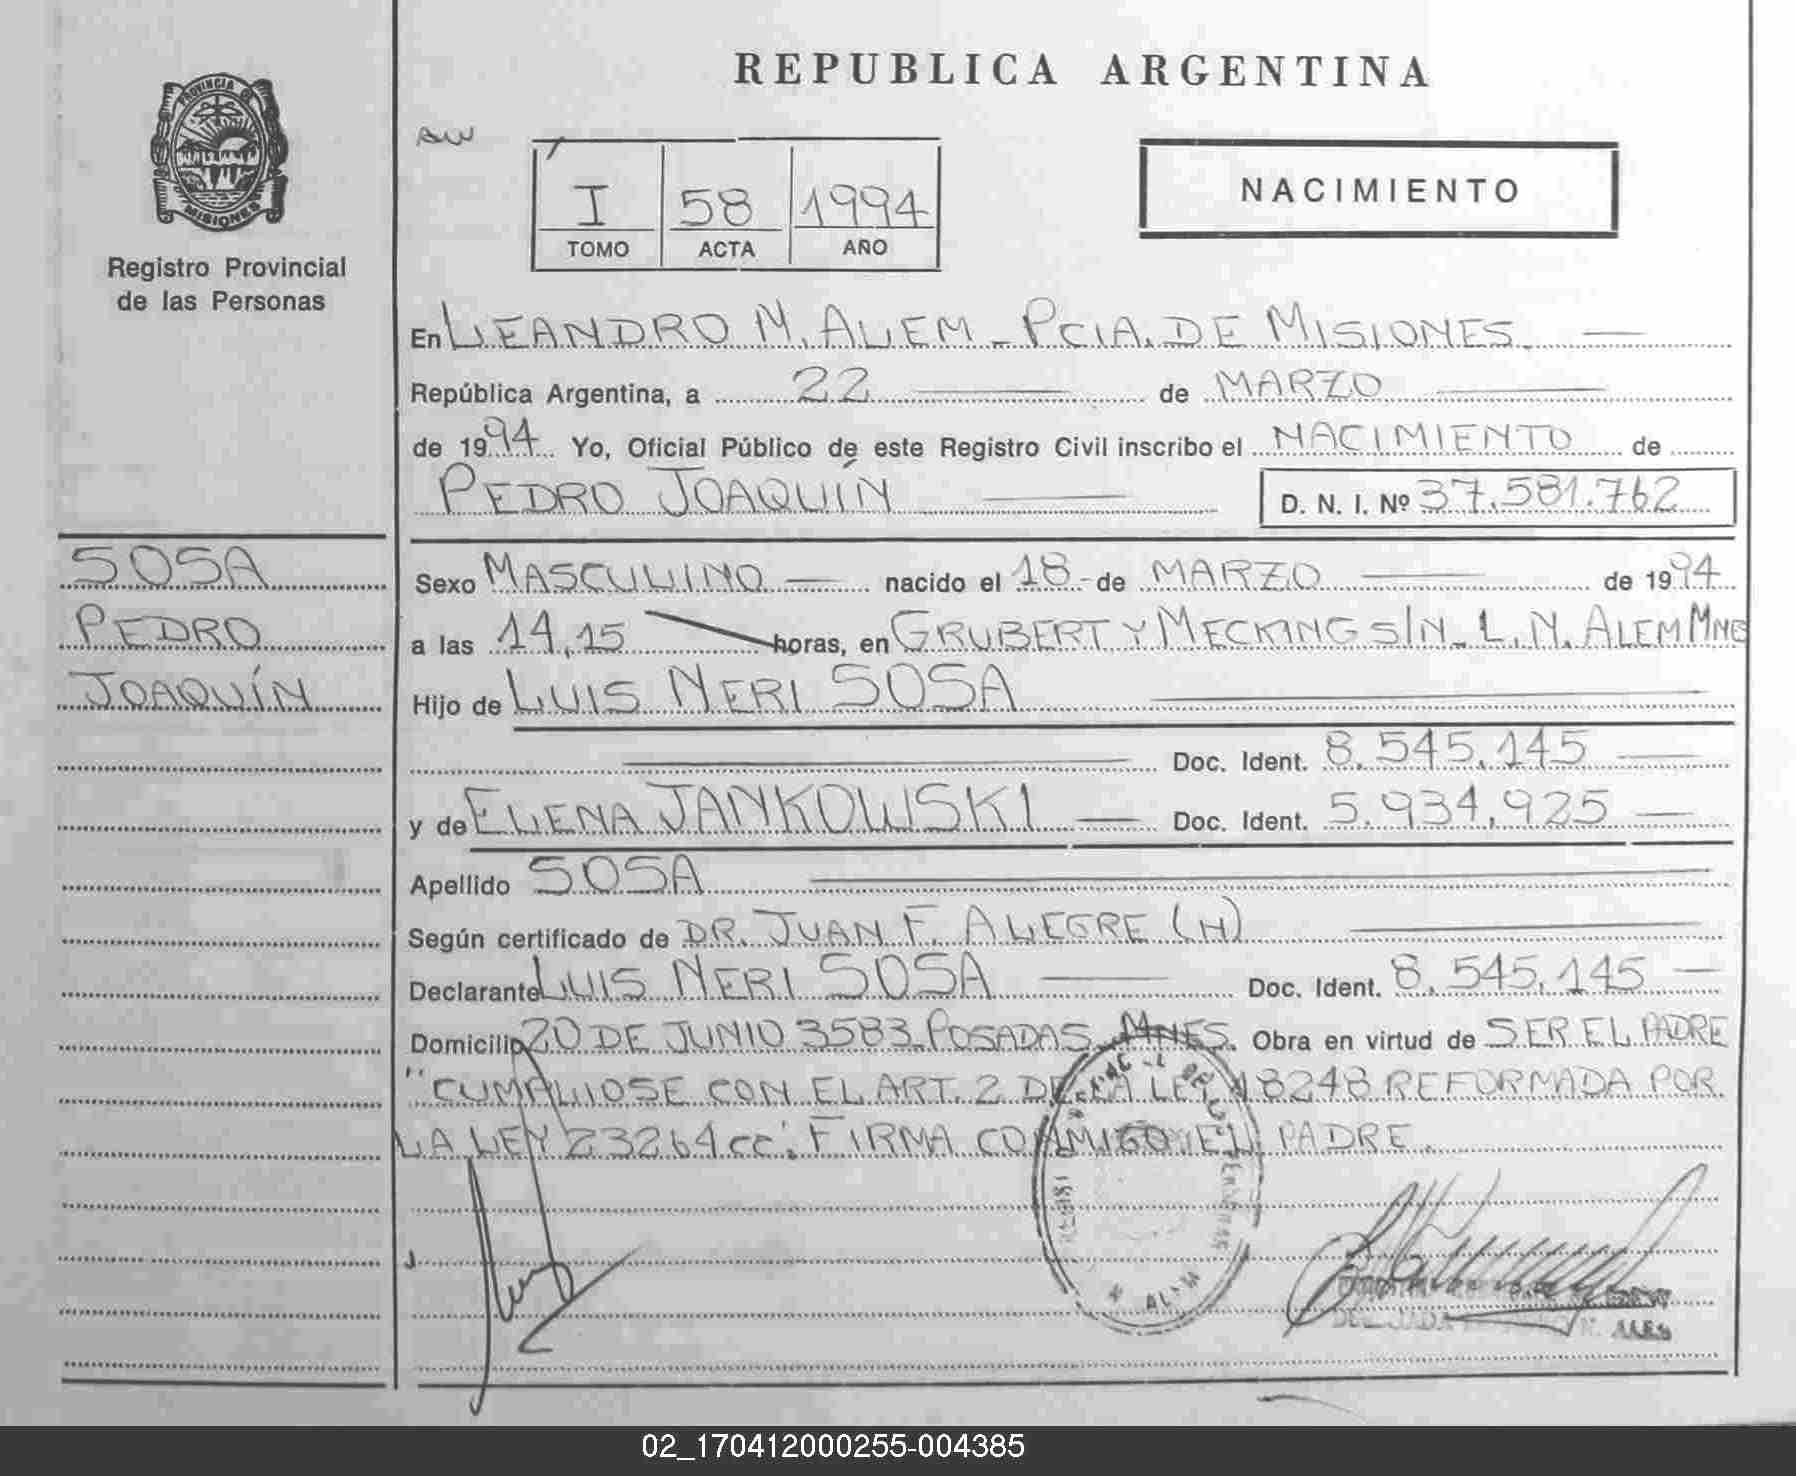 PROVINCIA DE
MISIONES
Registro Provincial
de las Personas
REPUBLICA ARGENTINA
I 58 1994
TOMO ACTA AÑO
NACIMIENTO
En LEANDRO N. ALEM - PCIA. DE MISIONES.
República Argentina, a 22 de MARZO
de 1994 Yo, Oficial Público de este Registro Civil inscribo el NACIMIENTO de
PEDRO JOAQUÍN D. N. I. Nº 37.581.762
SOSA
PEDRO
JOAQUÍN
Sexo MASCULINO nacido el 18 - de MARZO de 1994
a las 14,15 horas, en GRUBERT Y MECKING S/N - L. N. ALEM MNES
Hijo de LUIS NERI SOSA
Doc. Ident. 8.545.145
y de ELENA JANKOWSKI Doc. Ident. 5.934.925
Apellido SOSA
Según certificado de DR. JUAN F. ALEGRE (H)
Declarante LUIS NERI SOSA Doc. Ident. 8.545.145
Domicilio 20 DE JUNIO 3583 POSADAS MNES. Obra en virtud de SER EL PADRE
"CUMPLIOSE CON EL ART. 2 DE LA LEY 18248 REFORMADA POR
LA LEY 23264 cc". FIRMA CONMIGO EL PADRE.
02_170412000255-004385